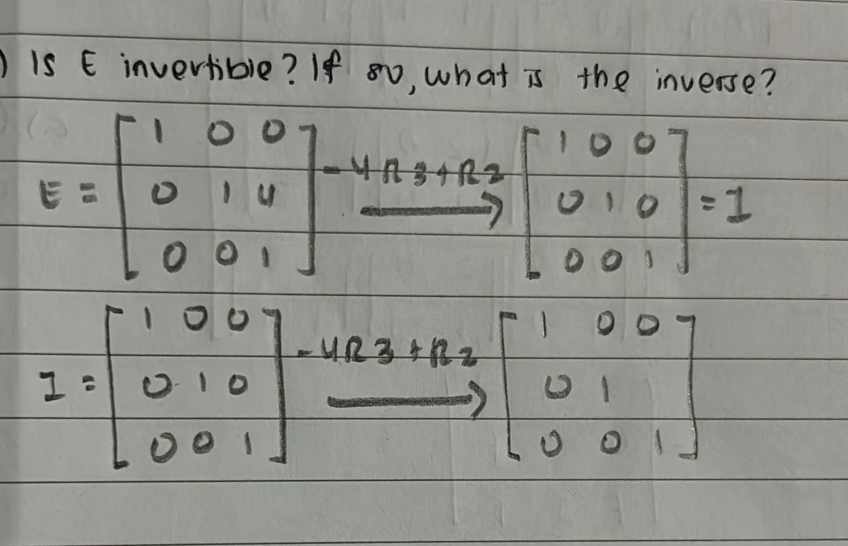 ) Is E invertible? If so, what is the inverse?
E = [1 0 0; 0 1 4; 0 0 1] -4R3+R2 → [1 0 0; 0 1 0; 0 0 1] = I
I = [1 0 0; 0 1 0; 0 0 1] -4R3+R2 → [1 0 0; 0 1; 0 0 1]